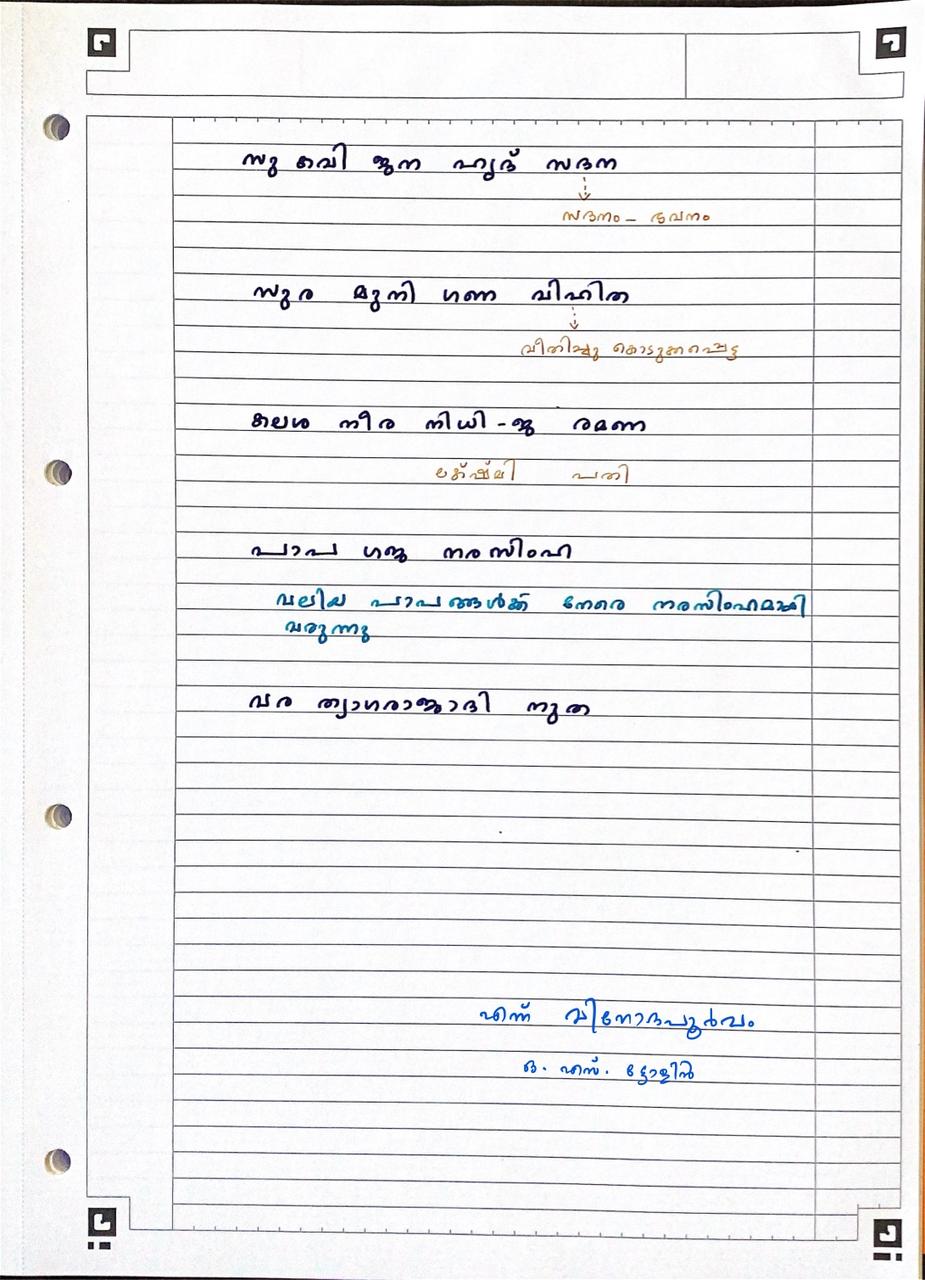 സു കവി ജന ഹൃദ് സദന
സദനം - ഭവനം
സുര മുനി ഗണ വിഹിത
വീതിച്ചു കൊടുക്കപ്പെട്ട
കലശ നീര നിധി - ജ രമണ
ലക്ഷ്മി പതി
പാപ ഗജ നരസിംഹ
വലിയ പാപങ്ങൾക്ക് നേരെ നരസിംഹമായി
വരുന്നു
വര ത്യാഗരാജാദി നുത
എന്ന് വിനോദപൂർവം
എസ്.